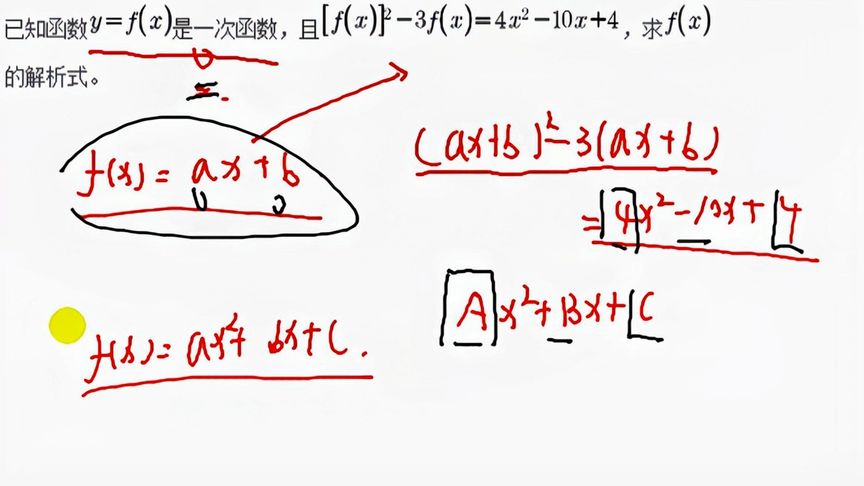 已知函数y=f(x)是一次函数，且[f(x)]²-3f(x)=4x²-10x+4，求f(x)
的解析式。
f(x)=ax+b
(ax+b)²-3(ax+b)
=4x²-10x+4
Ax²+Bx+C
f(x)=ax²+bx+C.